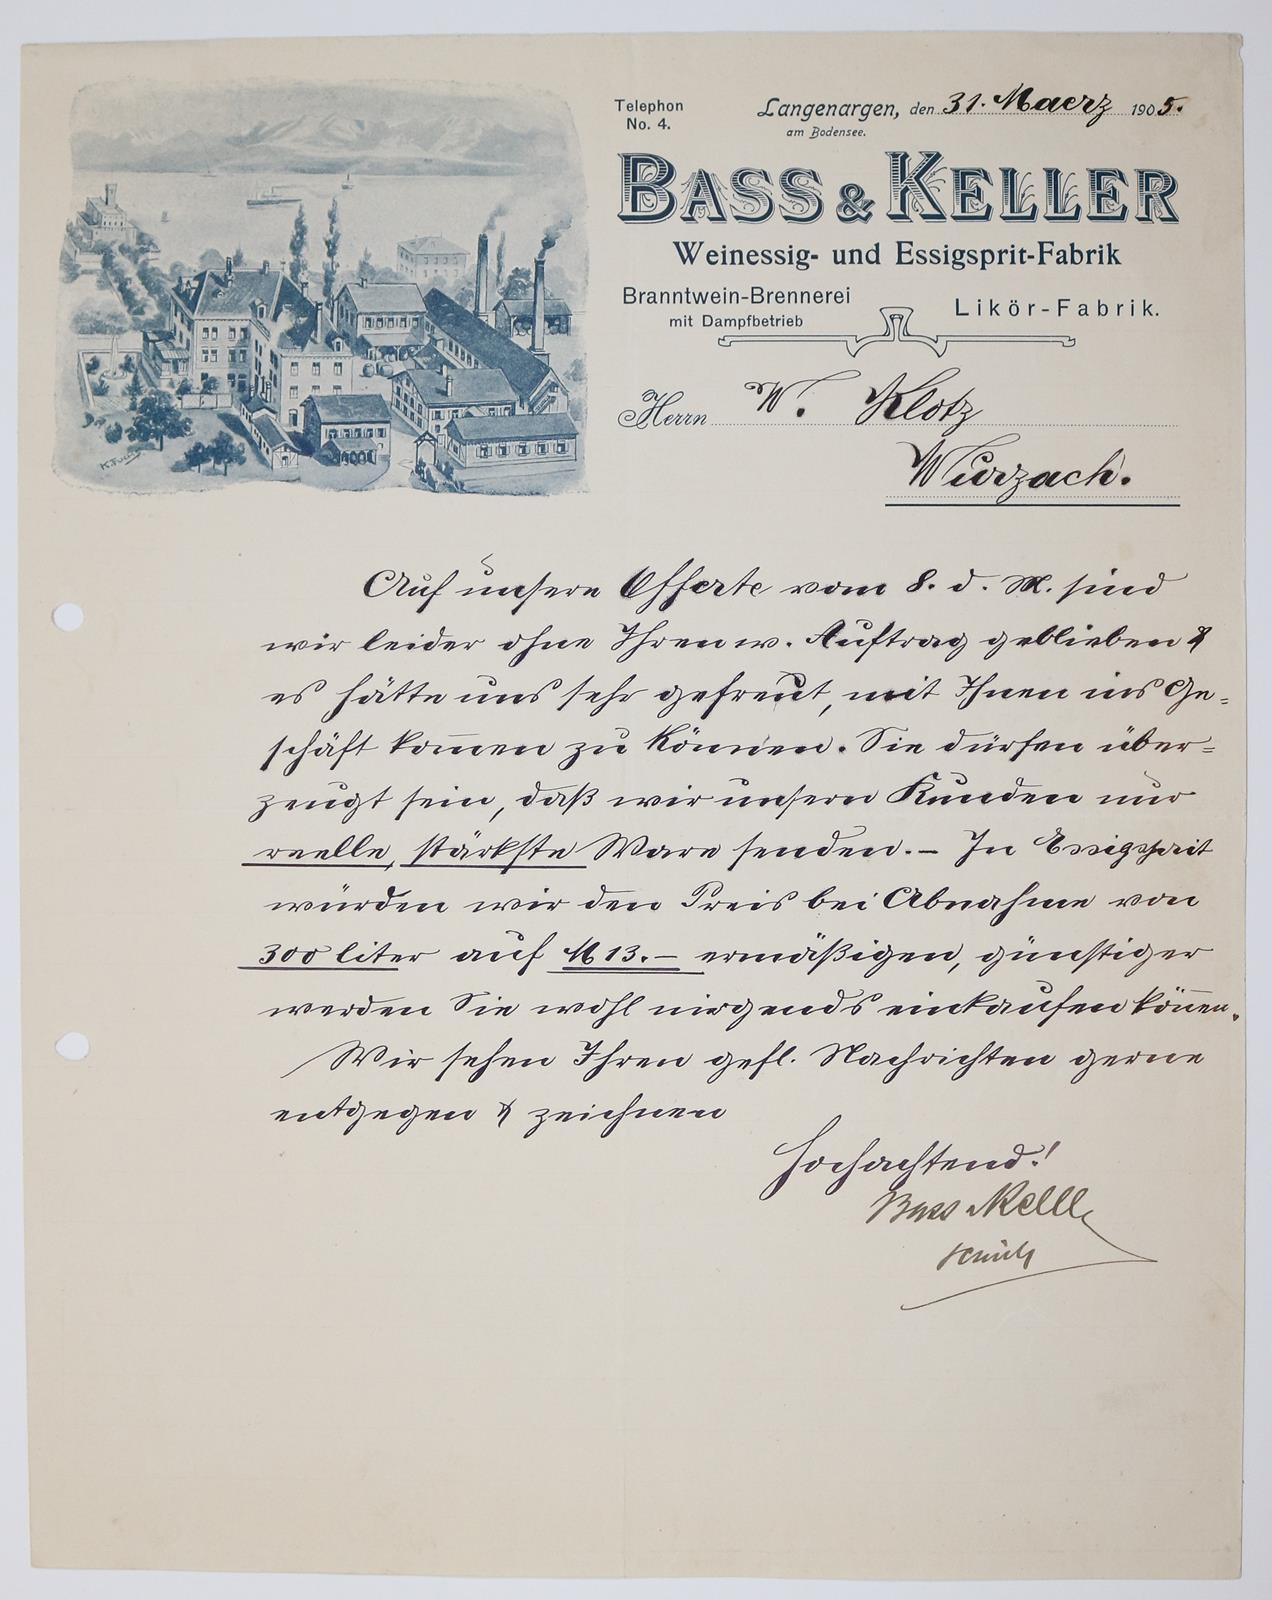 Telephon
No. 4.
Langenargen, den 31. Maerz 1905.
am Bodensee.
BASS & KELLER
Weinessig- und Essigsprit-Fabrik
Branntwein-Brennerei
mit Dampfbetrieb
Likör-Fabrik.
Herrn W. Klotz
Wurzach.
Auf unsere Offerte vom 8. d. M. sind
wir leider ohne Ihren w. Auftrag geblieben &
es hätte uns sehr gefreut, mit Ihnen ins Ge-
schäft kom̅en zu können. Sie dürfen über-
zeugt sein, daß wir unsern Kunden nur
reelle, stärkste Ware senden. – In Essigsprit
würden wir den Preis bei Abnahme von
300 liter auf M 13.– ermäßigen, günstiger
werden Sie wohl nirgends einkaufen kön̅en.
Wir sehen Ihren gefl. Nachrichten gerne
entgegen & zeichnen
Hochachtend!
Bass & Keller